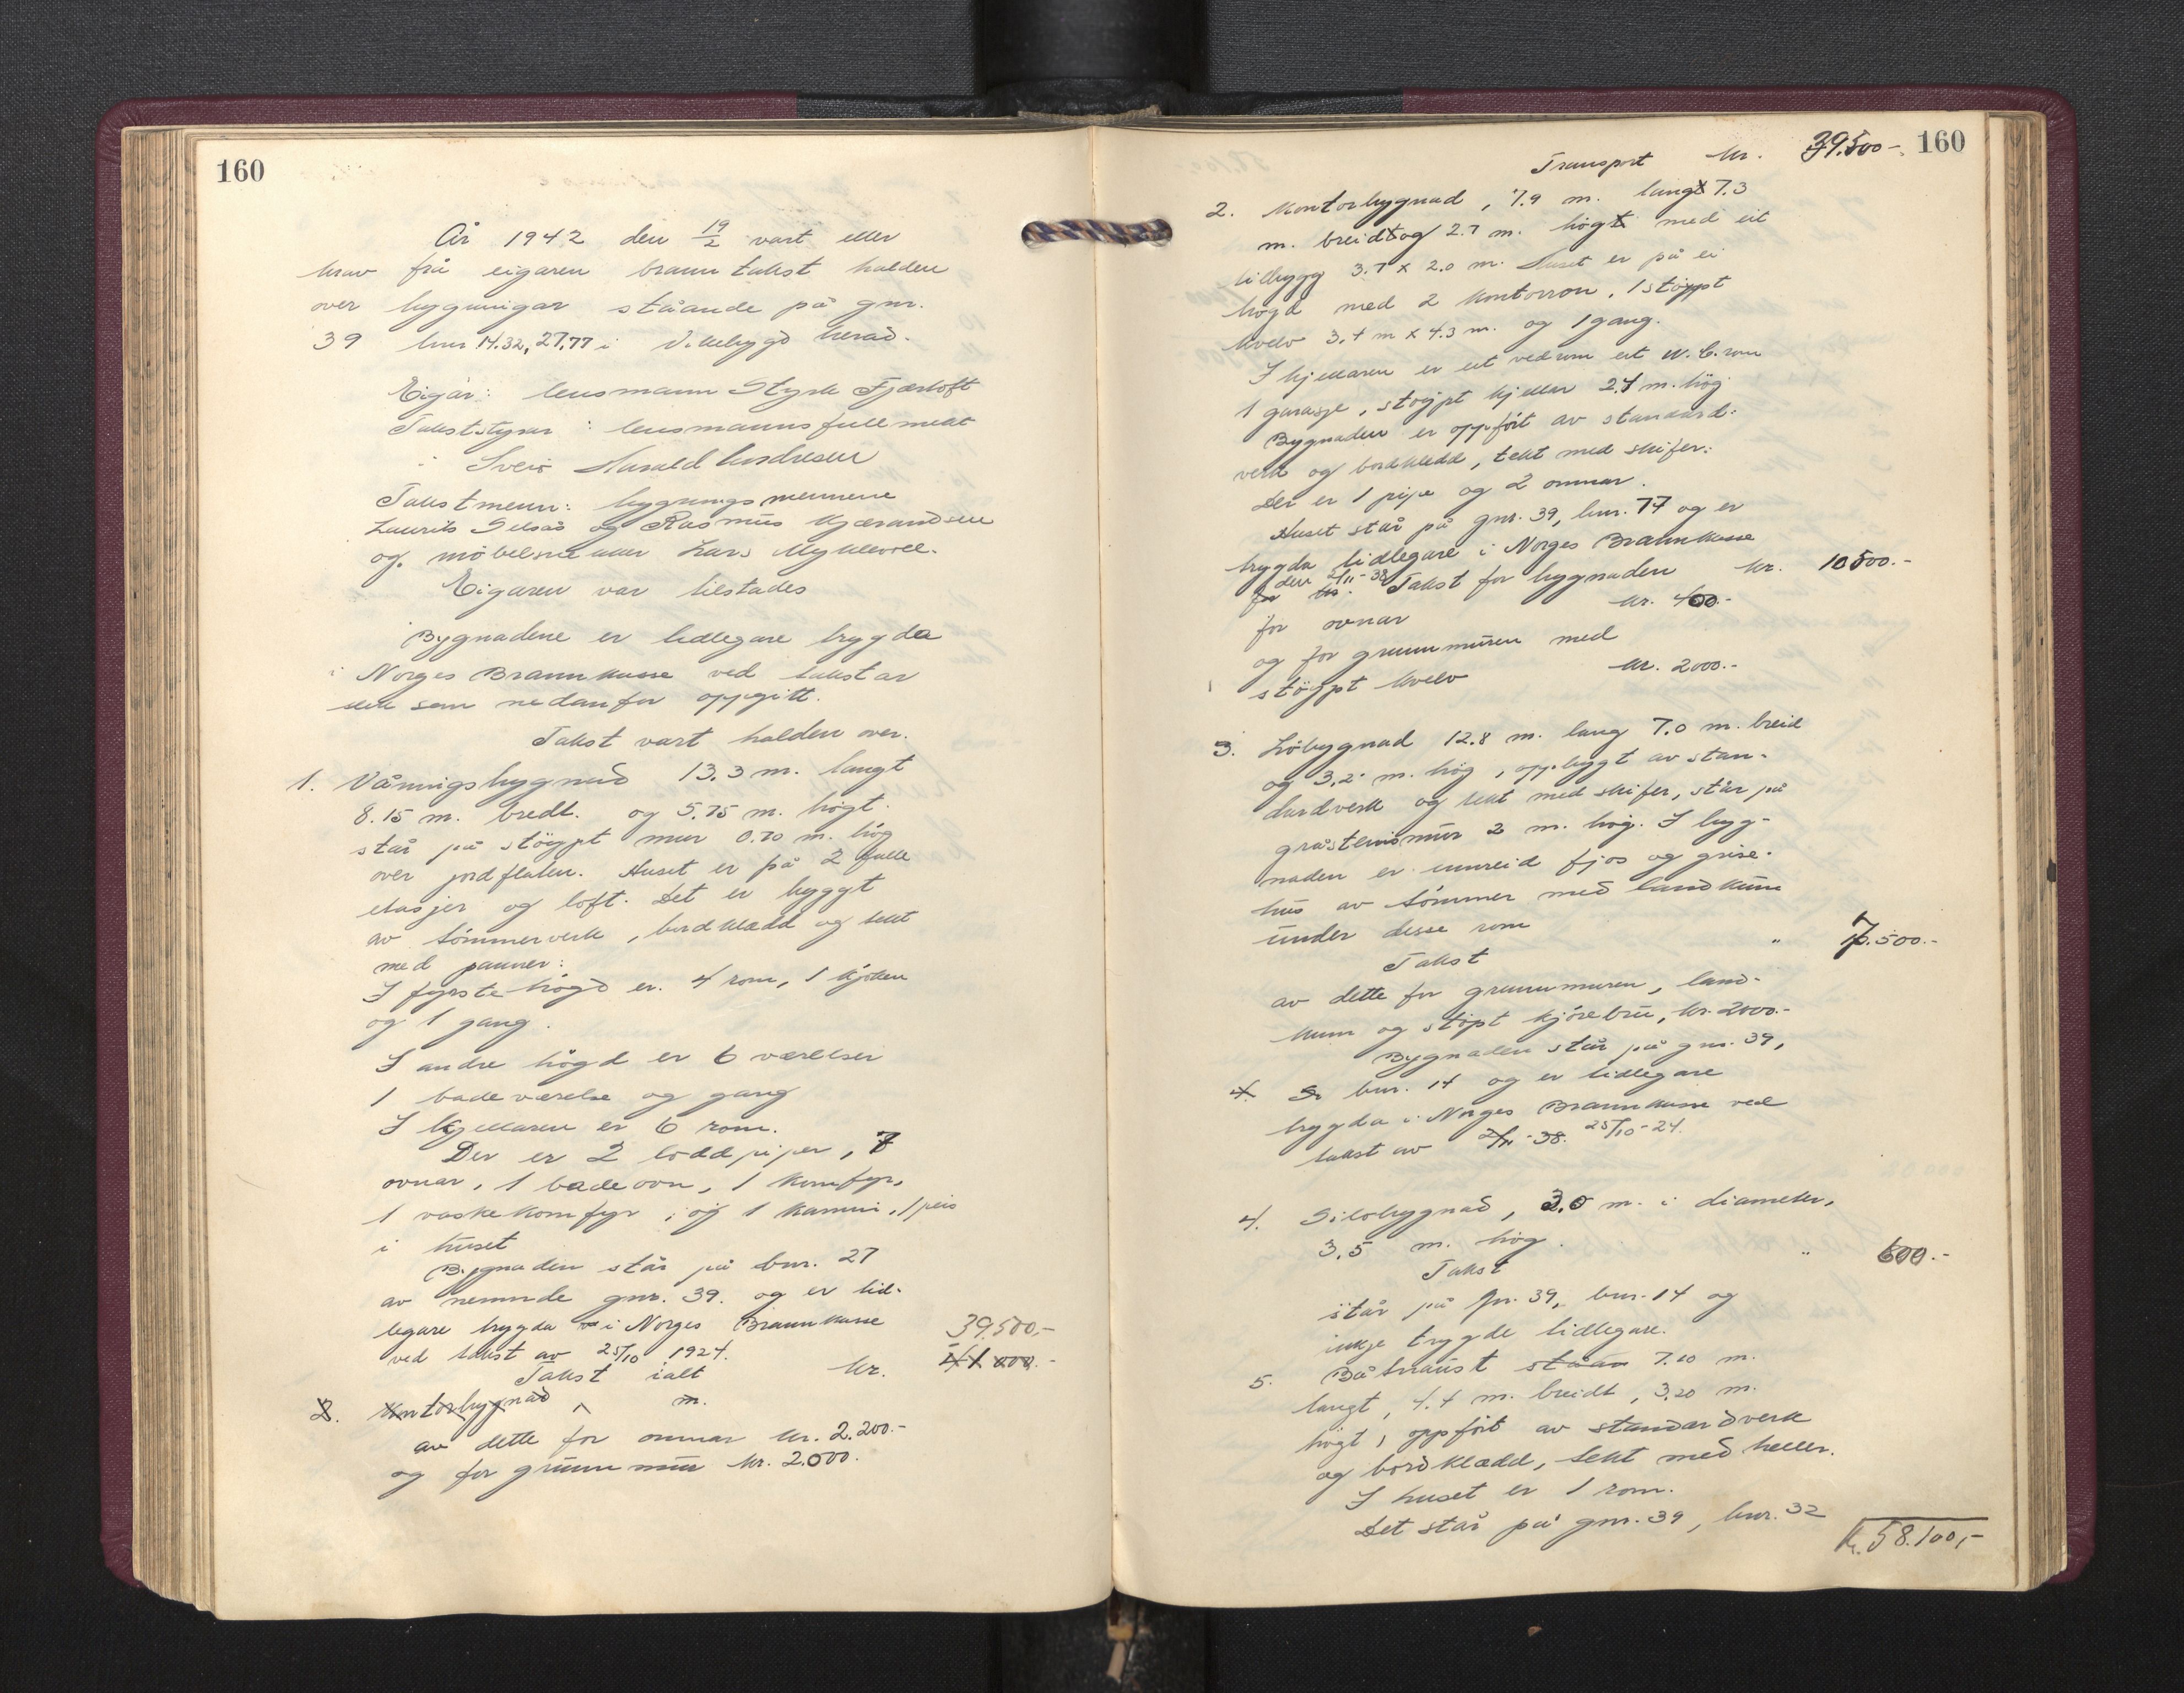 160
År 1942 den 19/2 vart etter
krav frå eigaren branntakst halden
over bygningar ståande på gnr.
39 bnr. 14.32, 27,77 i Vikebygd herad.
Eigar: lensmann Styrk Fjærtoft
Takststyrar: lensmannsfullmekt
i Sveio Harald Andresen
Takstmenn: bygningsmennene
Laurits Selsås og Rasmus Kjærandsen
og møbelsnekker Lars Myklevoll.
Eigaren var tilstades
Bygnadene er tidlegare trygda
i Norges Brannkasse ved takstar
som nedanfor oppgitt.
Takst vart halden over.
1. Våningsbygnad 13.3 m. langt
8.15 m. bredt. og 5.75 m. högt.
står på stöypt mur 0.70 m. hög
over jordflaten. Huset er på 2 fulle
etasjer og loft. Det er bygyt
av tömmerverk, bordklædd og tekt
med panner:
I fyrste högd er. 4 rom, 1 kjöken
og 1 gang.
I andre högd er 6 værelser
1 badeværelse og gang
I kjellaren er 6 rom.
Der er 2 loddpiper, 7
ovnar, 1 badeovn, 1 komfyr,
1 vaskekomfyr, og 1 kamin, 1 peis
i huset
Bygnaden står på bnr. 27
av nemnde gnr. 39. og er tid-
legare trygda i Norges Brannkasse
ved takst av 25/10 1924.
39.500,-
Takst ialt kr. 41 000.-
2. Kontorbygnad m.
av dette for omnar kr. 2.200.-
og for grunnmur kr. 2.000.
160
Transport kr. 39.500-
2. Kontorbygnad, 7.9 m. langt 7.3
m. breidt og 2.7 m. högt med eit
tilbygg 3.7 x 2.0 m. Huset er på ei
högd med 2 kontorrom, 1 stöypt
kvelv 3.4 m x 4.3 m. og 1 gang.
I kjellaren er eit vedrum eit W.C. rom
1 garasje, stöypt kjeller 2.4 m. hög
Bygnaden er oppfört av standard-
verk og bordkledd, tekt med skifer.
Der er 1 pipe og 2 omnar.
Huset står på gnr. 39, bnr. 77 og er
trygda tidlegare i Norges Brannkasse
den 2/11-38
for kr. Takst for bygnaden kr. 10500.-
for ovnar kr. 400.-
og for grunnmuren med
stöypt kvelv kr. 2000.-
3. Löbygnad 12.8 m. lang 7.0 m. breid
og 3.2 m. hög, oppbygt av stan-
dardverk og tekt med skifer, står på
gråsteinsmur 2 m. hög. I byg-
naden er innreid fjos og grise-
hus av tömmer med landkum
under desse rom
Takst " 7.500.-
av dette for grunnmuren, land-
kum og stöpt kjörebru, kr. 2000.-
Bygnaden står på gnr. 39,
4. S bnr. 14 og er tidlegare
trygda i Norges Brannkasse ved
takst av 2/11-38. 25/10-24.
4. Silobygnad, 3.0 m. i diameter,
3.5 m. hög.
Takst " 600.-
står på gnr. 39, bnr. 14 og
ikkje trygde tidlegare.
5. Båtnaust ståan 7.10 m.
langt, 4.4 m. breidt, 3.20 m.
högt, oppfört av standardverk
og bordklædd, tekt med heller.
I huset er 1 rom.
Det står på gnr. 39, bnr. 32
kr. 58.100,-